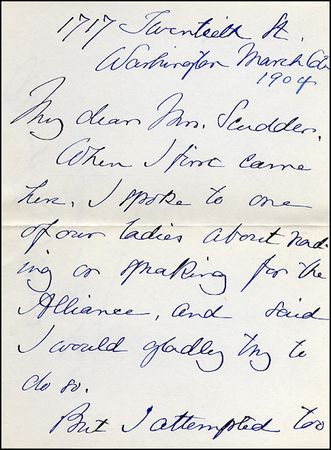 1717 Twentieth St.
Washington March 6th
1904
My dear Mrs. Scudder,
When I first came
here, I spoke to one
of our ladies about read-
ing or speaking for the
Alliance, and said
I would gladly try to
do so.
But I attempted too